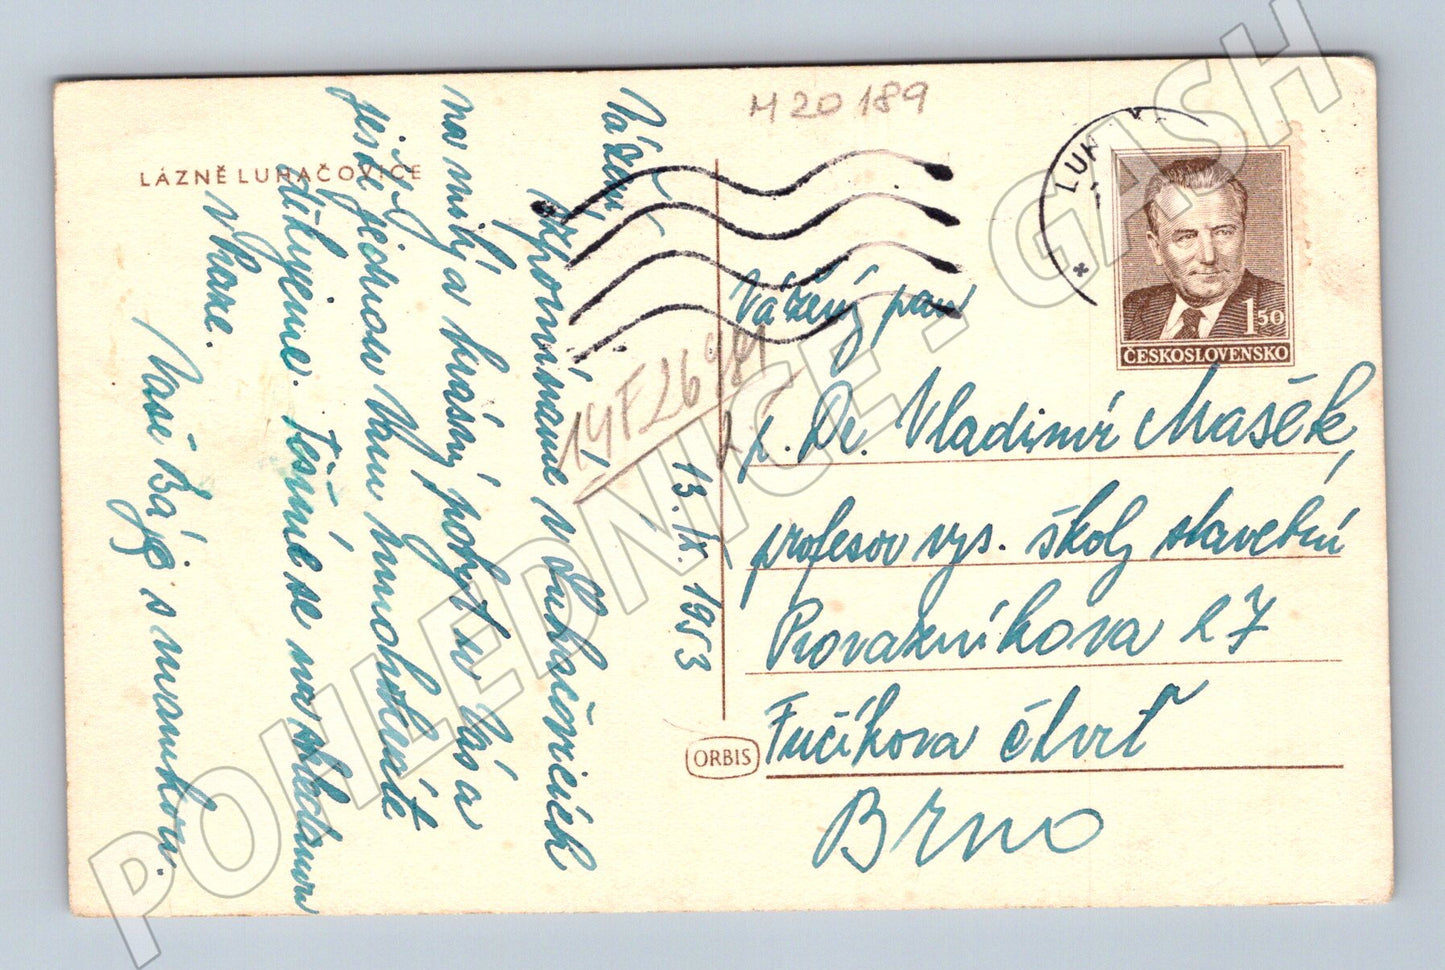 M 20 189
LÁZNĚ LUHAČOVICE
Vážení,
vzpomínáme v Luhačovicích
na milý a krásný pobyt u Vás a
ještě jednou Vám mnohokráte
děkujeme. Těšíme se na shledanou
v Praze.
Vaši Bájo s maminkou.
13. IX. 1953
14F26981
LUH
*
1.50
ČESKOSLOVENSKO
Vážený pan
p. Dr. Vladimír Mašék
profesor vys. školy stavební
Provazníkova 27
Fučíkova čtvrť
Brno
ORBIS
POHLEDNICE - GASH